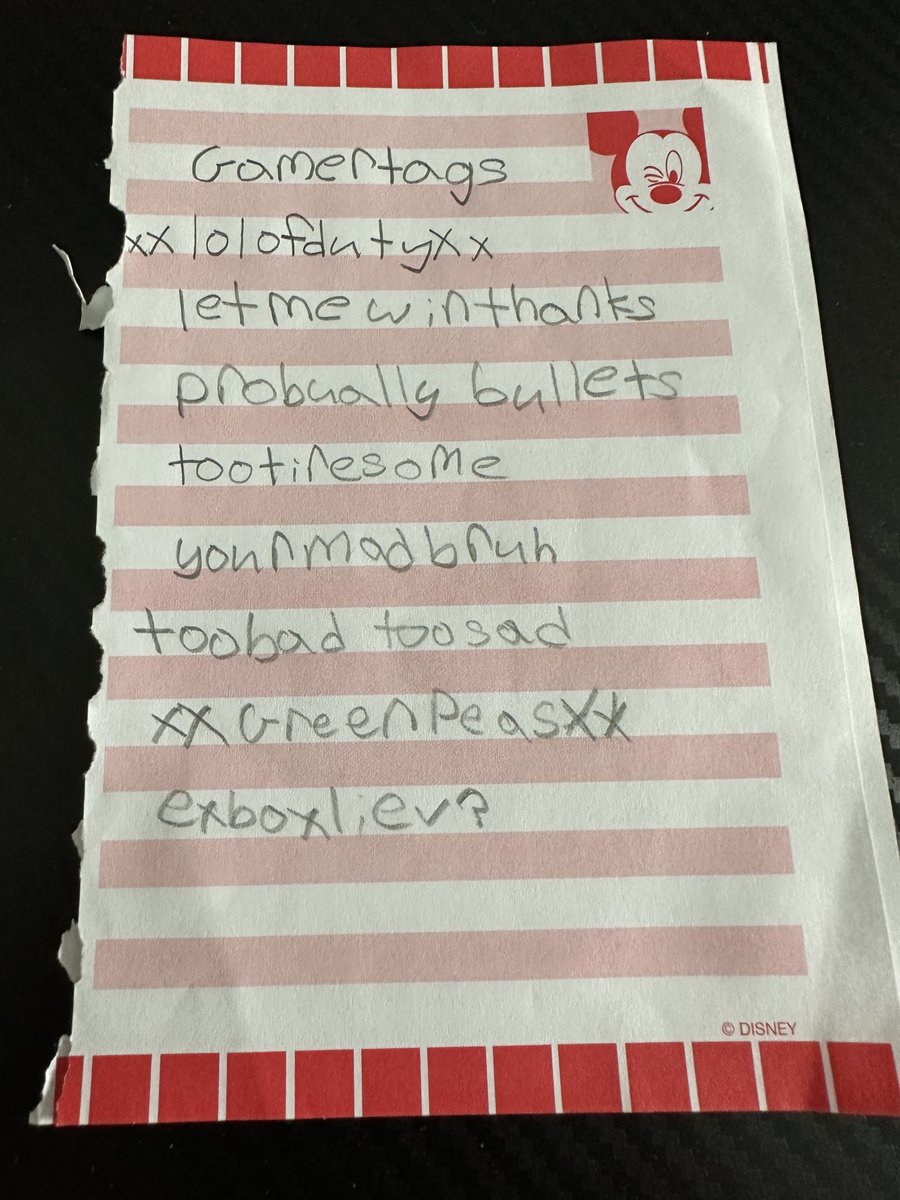 Gamertags
xxlolofdutyXx
letmewinthanks
probually bullets
tootiresome
yourmadbruh
toobad toosad
xXGreenPeasXx
exboxliev?
© DISNEY